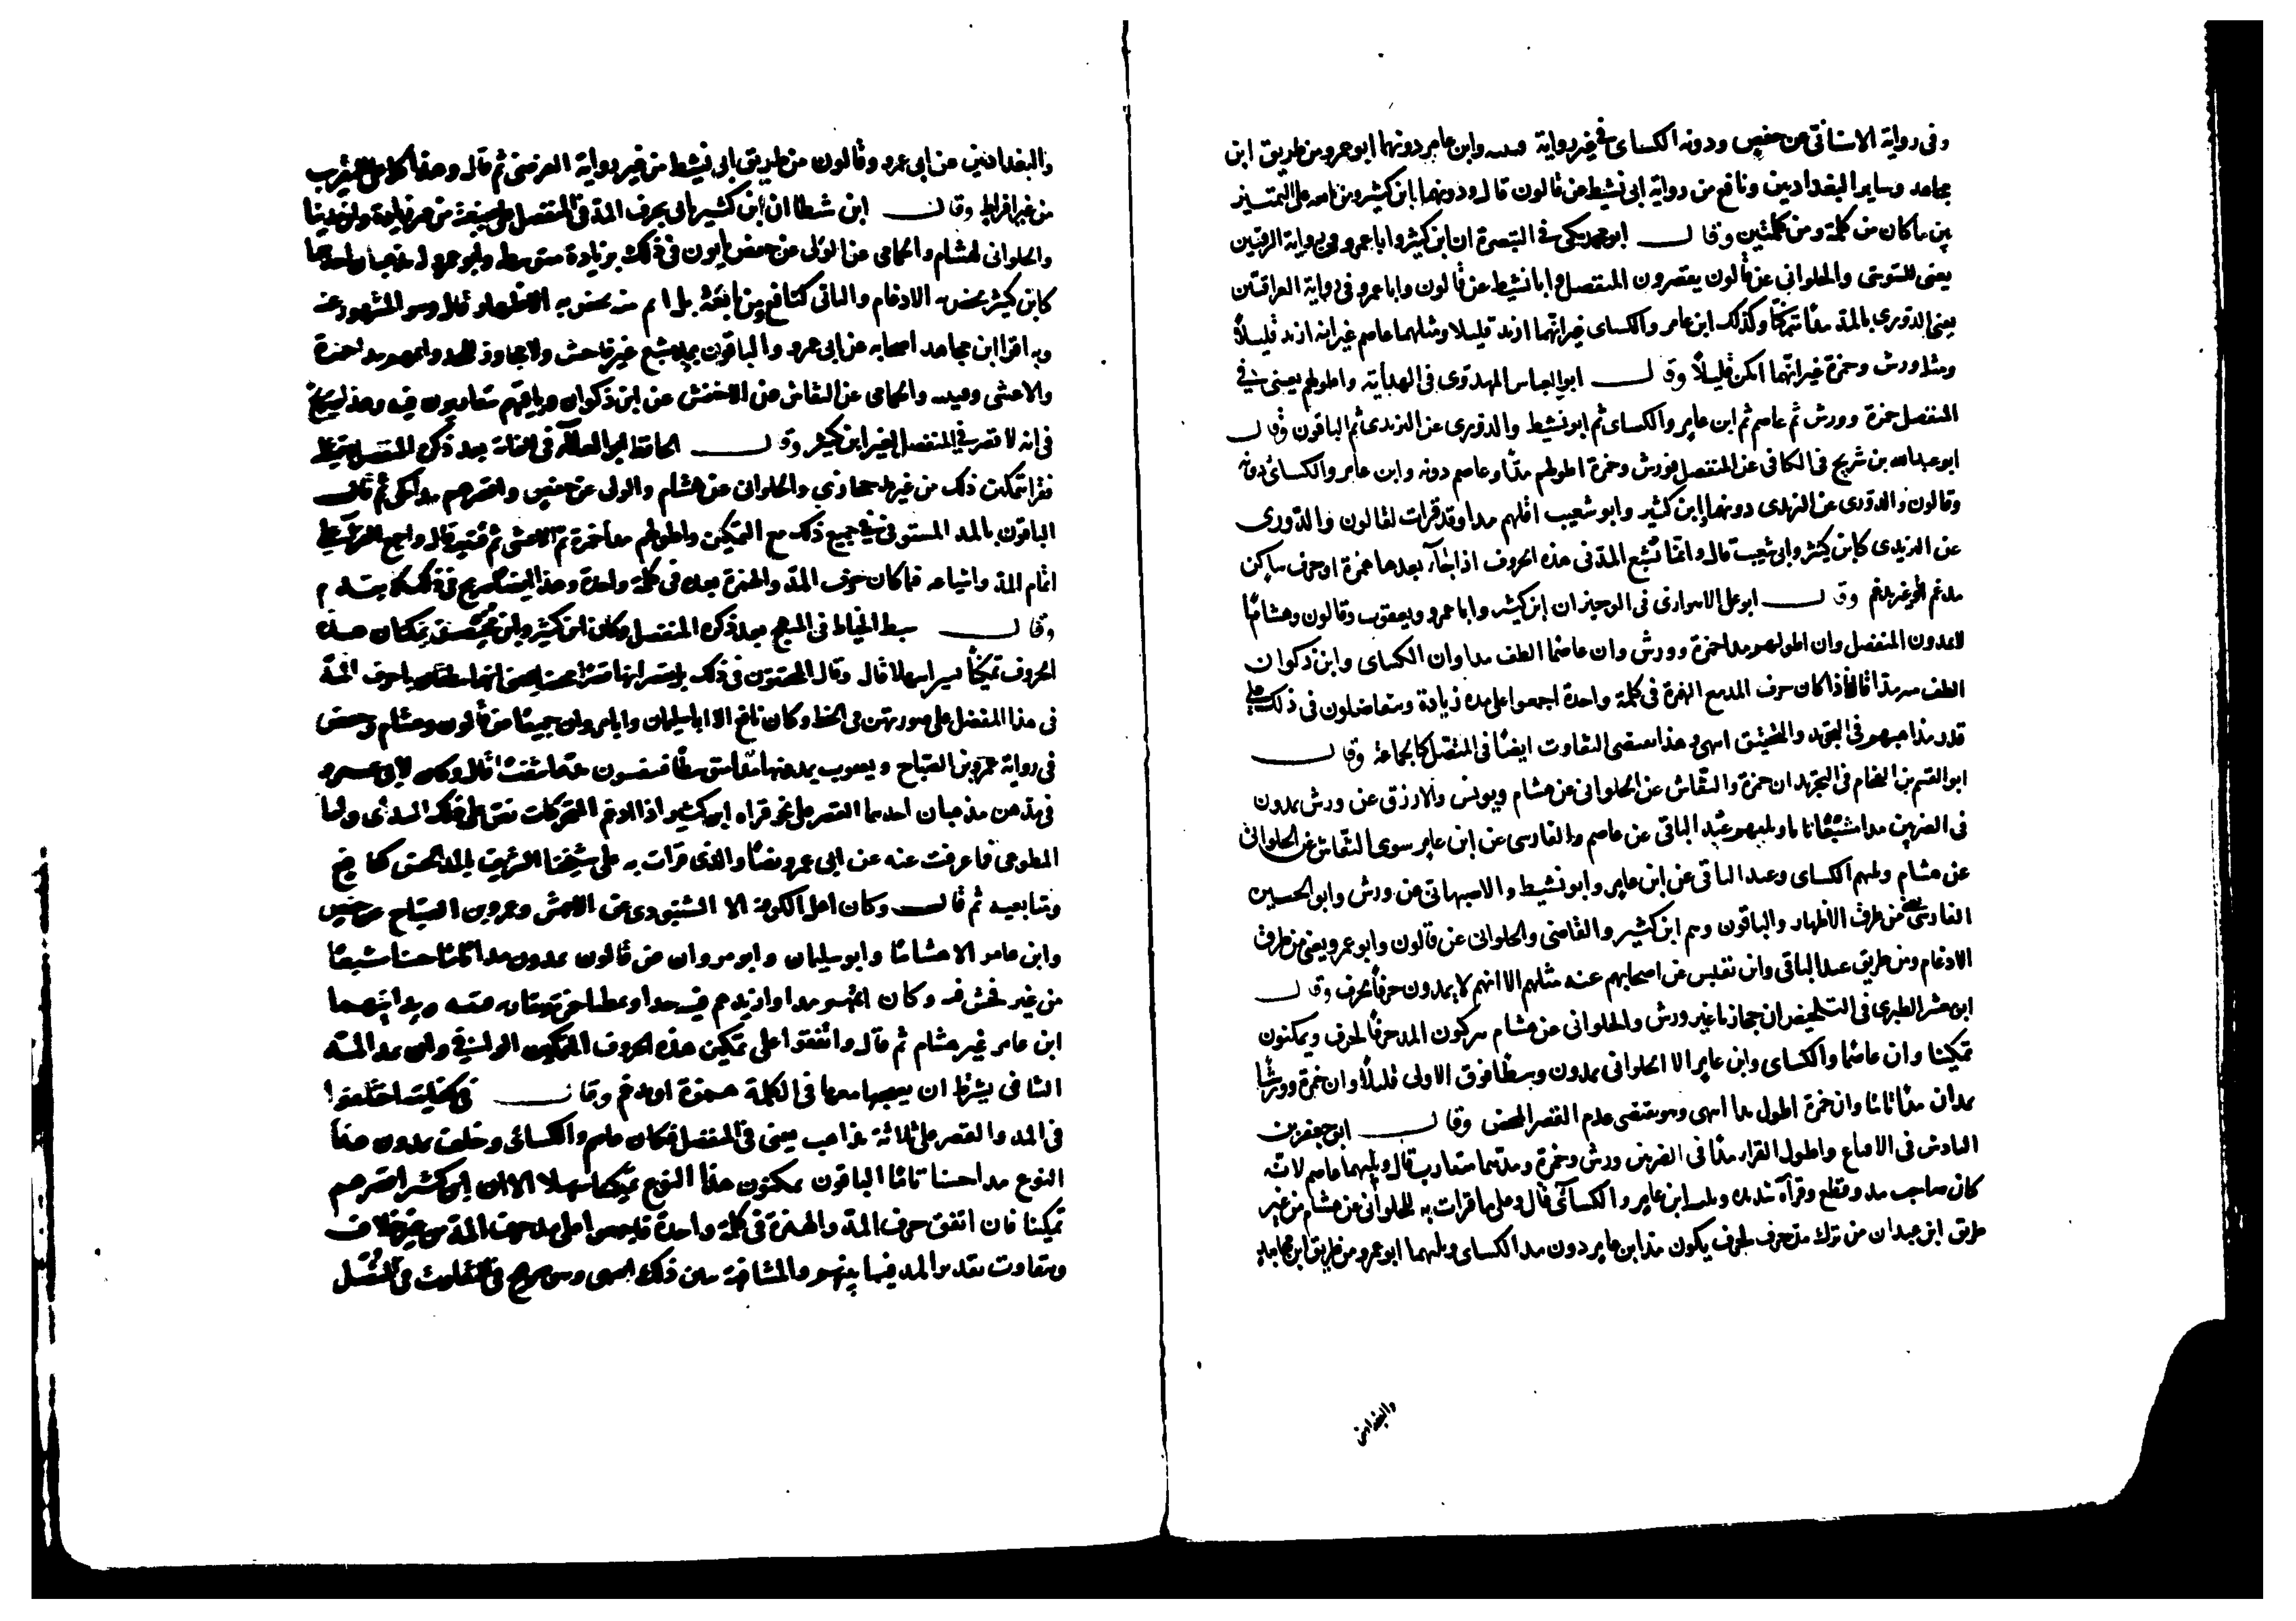 وفى رواية الاشنانى عن حفص ودونه الكساى فى غير رواية قتيبه وابن عامر دونهما ابو عمرو من طريق ابن
مجاهد وساير البغداديين ونافع من رواية ابى نشيط عن قالون قال ودونهما ابن كثير ومن تابعه على التمييز
بين ما كان من كلمة ومن كلمتين وقال ابو محمد مكى فى التبصرة ان ابن كثير وابا عمرو فى رواية الرقيين
يعنى السوسى والحلوانى عن قالون يقصرون المنفصل وابا نشيط عن قالون وابا عمرو فى رواية العراقيين
يعنى الدورى بالمد مدًا متمكنًا وكذلك ابن عامر والكساى غير انهما ازيد قليلا ومثلهما عاصم غير انه ازيد قليلاً
ومثله ورش وحمزة غير انهما امكن قليلاً وقال ابو العباس المهدوى فى الهداية واطولهم يعنى فى
المنفصل حمزة وورش ثم عاصم ثم ابن عامر والكساى ثم ابو نشيط والدورى عن اليزيدى ثم الباقون وقال
ابو عبد الله بن شريح فى الكافى عن المنفصل فورش وحمزة اطولهم مدًا وعاصم دونه وابن عامر والكسائى دونه
وقالون والدورى عن اليزيدى دونهما وابن كثير وابو شعيب اقلهم مدا وقد قرات لقالون والدورى
عن اليزيدى كابن كثير وابى شعيب قال وانما يشبع المد فى هذه الحروف اذا جاء بعدها همزة او حرف ساكن
مدغم او غير مدغم وقال ابو على الاهوازى فى الوجيز ان ابن كثير وابا عمرو ويعقوب وقالون وهشامًا
لا يمدون المنفصل وان اطولهم مدا حمزة وورش وان عاصما الطف مدا وان الكساى وابن ذكوان
الطف منه مدا قال فاذا كان حرف المد مع الهمزة فى كلمة واحدة اجمعوا على مده زيادة ويتفاضلون فى ذلك على
قدر مذاهبهم فى التجويد والتحقيق انتهى وهذا يقتضى التفاوت ايضًا فى المتصل كالجماعة وقال
ابو القسم بن الفحام فى التجريد ان حمزة والنقاش عن الحلوانى عن هشام ويونس والازرق عن ورش يمدون
فى الضربين مدا مشبعًا تاما ويليهم عبد الباقى عن عاصم والفارسى عن ابن عامر سوى النقاش عن الحلوانى
عن هشام ويليهم الكساى وعبد الباقى عن ابن عامر وابو نشيط والاصبهانى عن ورش وابو الحسين
الفارسى يعنى من طرق الاظهار والباقون وهم ابن كثير والقاضى والحلوانى عن قالون وابو عمرو يعنى من طرق
الادغام ومن طريق عبد الباقى وابن نفيس عن اصحابهم عنه مثلهم الا انهم لا يمدون حرفاً لحرف وقال
ابو معشر الطبرى فى التلخيص ان حجازيا غير ورش والحلوانى عن هشام يتركون المد حرفًا لحرف ويمكنون
تمكينًا وان عاصما والكساى وابن عامر الا الحلوانى يمدون وسطًا فوق الاولى قليلاً وان حمزة وورشا
يمدان مدًا تامًا وان حمزة اطول مدا انتهى وهو يقتضى عدم القصر المحض وقال ابو جعفر بن
الباذش فى الاقناع واطول القراء مدًا فى الضربين ورش وحمزة ومدهما متقارب قال ويليهما عاصم لانه
كان صاحب مد وقطع وقراءة شديدة ويليه ابن عامر والكسائى قال وعلى ما قرات به للحلوانى عن هشام من غير
طريق ابن عبدان من ترك مد حرف لحرف يكون مد ابن عامر دون مد الكساى ويليهما ابو عمرو من طريق ابن مجاهد
والبغداديين
والبغداديين عن ابى عمرو وقالون من طريق ابى نشيط من غير رواية الفرضى ثم قال وهذا كله على التقريب
من غير افراط وقال ابن شطا ان ابن كثير ياتى بحرف المد فى المنفصل على صيغته من غير زيادة وان مدينا
والحلوانى لهشام والحمامى عن الولى عن حفص ياتون فى ذلك بزيادة متوسطة وابو عمرو له مذهبان احدهما
كابن كثير يخص به الادغام والثانى كنافع ومن تابعه بل اتم منه يخص به الاظهار قال وهو المشهور عنه
وبه اقرا ابن مجاهد اصحابه عن ابى عمرو والباقون بمد مشبع غير فاحش ولا مجاوز للحد واتمهم مدا حمزة
والاعشى وقتيبه والحمامى عن النقاش عن الاخفش عن ابن ذكوان وباقيهم متقاربون فيه وهذا صريح
فى انه لا قصر فى المنفصل لغير ابن كثير وقال الحافظ ابو العلاء فى الغاية بعد ذكره المنفصل
فقرا بتمكين ذلك من غير مد حجازى والحلوانى عن هشام والولى عن حفص واقصرهم مدا مكى ثم قال
الباقون بالمد المستوفى فى جميع ذلك مع التمكين واطولهم مدا حمزة ثم الاعشى ثم قتيبة قال واجمع القراء على
اتمام المد واشباعه فيما كان حرف المد والهمزة بعده فى كلمة واحدة وهذا ايضا صريح فى ذلك كما تقدم
وقال سبط الخياط فى المبهج بعد ذكره المنفصل وكان ابن كثير وابن محيصن يمكنان هذه
الحروف تمكينًا يسيرا سهلا قال وقال المحققون فى ذلك بل يقصرانها قصرا محضا يعنى انهما ينطقان باحرف المد
فى هذا المنفصل على صورتهن فى الخط وكان نافع الا ابا سليمان وابا مروان جميعًا عن قالون وهشام وحفص
فى رواية عمرو بن الصباح ويعقوب يمدونها مدا متوسطًا فينفسون مدها تنفسًا قال وكان لابى عمرو
فى مدهن مذهبان احدهما القصر على نحو قراءة ابن كثير اذا ادغم المتحركات نص على ذلك الشذائى واما
المطوعى فما عرفت عنه عن ابى عمرو نصًا والذى قرات به على شيخنا الشريف بالمد الحسن كنافع
ومتابعيه ثم قال وكان اهل الكوفة الا الشنبوذى عن الاعمش وعمرو بن الصباح عن حفص
وابن عامر الا هشامًا وابو سليمان وابو مروان عن قالون يمدون مدا تامًا حسنا مشبعًا
من غير فحش فيه وكان اتمهم مدا وازيدهم فيه حدا ومطا حمزة ويقاربه قتيبه ويدانيهما
ابن عامر غير هشام ثم قال واتفقوا على تمكين هذه الحروف التمكين الوافى وان يمد المد
الشافى بشرط ان يصحبها معها فى الكلمة همزة او مدغم وقال فى كفايته اختلفوا
فى المد والقصر على ثلاثة مذاهب يعنى فى المنفصل فكان عاصم والكسائى وخلف يمدون هذا
النوع مدا حسنا تامًا الباقون يمكنون هذا النوع تمكينا سهلا الا ان ابن كثير اقصرهم
تمكينا فان اتفق حرف المد والهمزة فى كلمة واحدة فاجمعوا على مد حرف المد من غير خلاف
ويتفاوت تقدير المد فيما بينهم والمشافهة تبين ذلك انتهى وهو صريح فى التفاوت فى المتصل